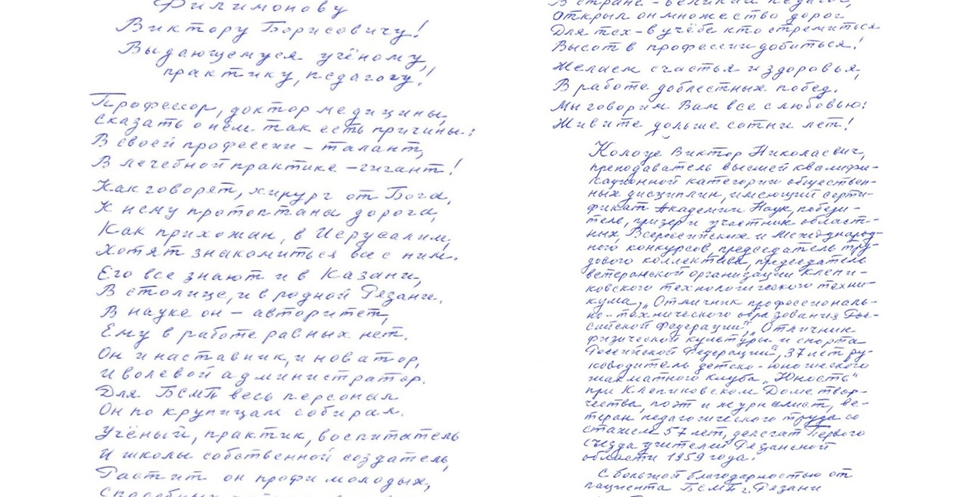 Филимонову
Виктору Борисовичу!
Выдающемуся учёному,
практику, педагогу!
Профессор, доктор медицины,
Сказать о нём так есть причины:
В своей профессии – талант,
В лечебной практике – гигант!
Как говорят, хирург от Бога,
К нему протоптана дорога,
Как прихожан, в Иерусалим,
Хотят знакомиться все с ним.
Его все знают и в Казани,
В столице, и в родной Рязани.
В науке он – авторитет,
Ему в работе равных нет.
Он и наставник, и новатор,
И волевой администратор.
Для БСМП весь персонал
Он по крупицам собирал.
Учёный, практик, воспитатель
И школы собственной создатель,
Растит он профи молодых,
Способных
В стране – великий педагог,
Открыл он множество дорог
Для тех – в учёбе кто стремится
Высот в профессии добиться!
Желаем счастья и здоровья,
В работе доблестных побед.
Мы говорим Вам все с любовью:
Живите дольше сотни лет!
Виктор Николаевич,
преподаватель высшей квалифи-
кационной категории обществен-
ных дисциплин, имеющий серти-
фикат Академии Наук, победи-
тель, призёр и участник област-
ных, Всероссийских и Международ-
ного конкурсов, председатель тру-
дового коллектива, председатель
ветеранской организации Клепи-
ковского технологического техни-
кума, „Отличник профессиональ-
но-технического образования Рос-
сийской Федерации", „Отличник
физической культуры и спорта
Российской Федерации", 37 лет ру-
ководитель детско-юношеского
шахматного клуба „Юность"
при Клепиковском Доме твор-
чества, поэт и журналист, ве-
теран педагогического труда со
стажем 57 лет, делегат Первого
съезда учителей Рязанской
области 1959 года.
С большой благодарностью от
пациента БСМП г. Рязани